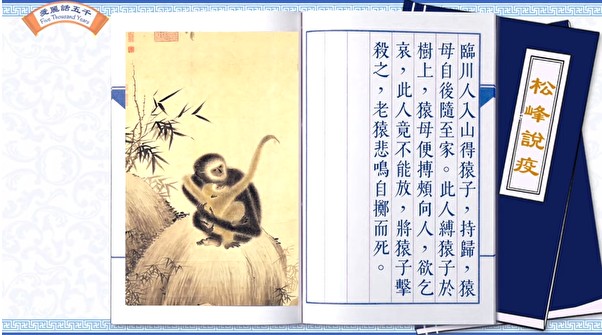 愛麗話五千
Five Thousand Years
臨川人入山得猿子，持歸，猿
母自後隨至家。此人縛猿子於
樹上，猿母便搏頰向人，欲乞
哀，此人竟不能放，將猿子擊
殺之，老猿悲鳴自擲而死。
松峰說疫